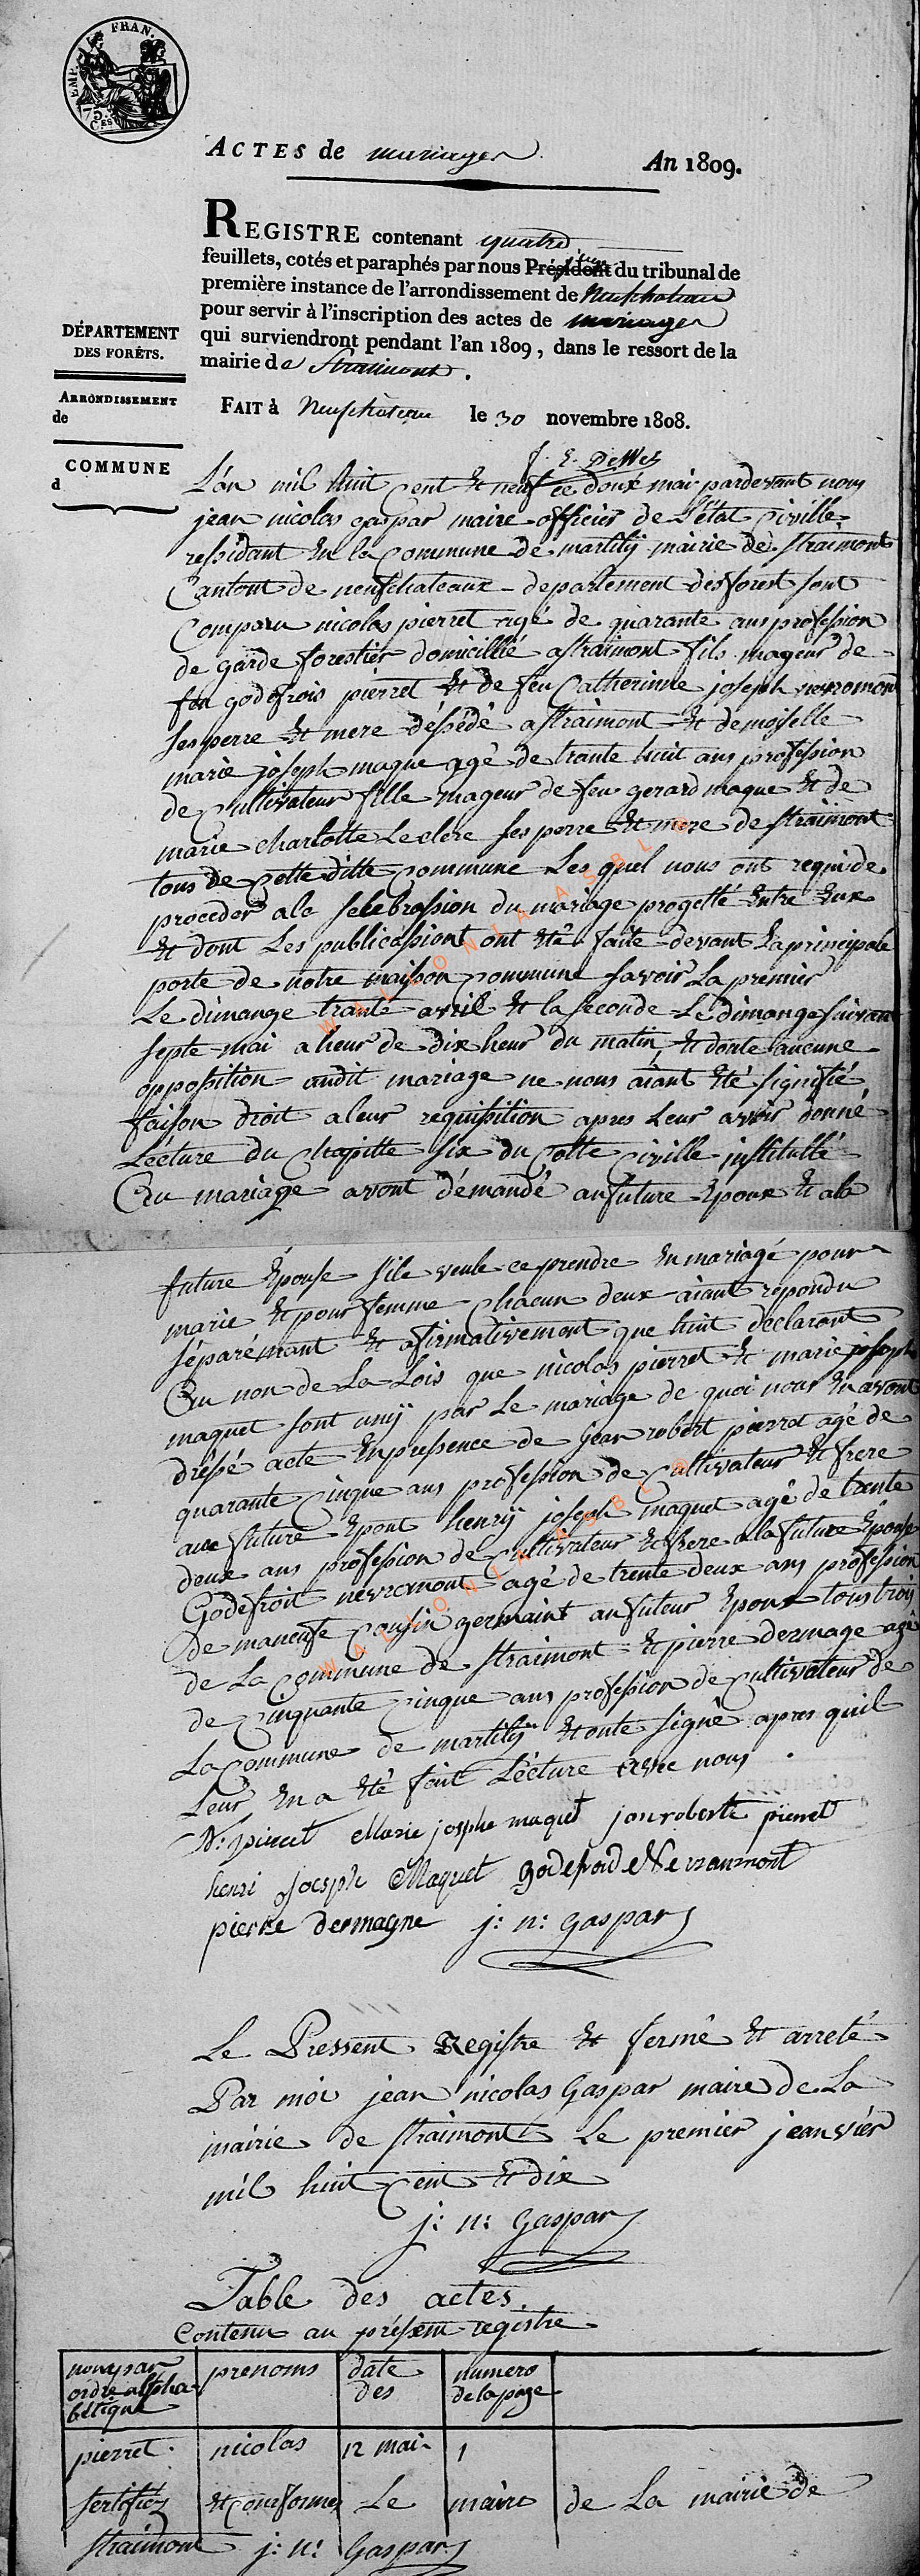 EMP. FRAN.
75 Ces
ACTES de mariages An 1809.
REGISTRE contenant quatre
feuillets, cotés et paraphés par nous Président du tribunal de
première instance de l'arrondissement de Neufchateau
pour servir à l'inscription des actes de mariages
qui surviendront pendant l'an 1809, dans le ressort de la
mairie de Straimont.
DÉPARTEMENT
DES FORÊTS.
ARRONDISSEMENT
de
COMMUNE
d
FAIT à Neufchateau le 30 novembre 1808.
L'an mil huit cent et neuf ce douxe mai pardevant nous
jean nicolas gaspar maire officier de L'état Civille
ressidant En la Commune de martilÿ mairie de straimont
Cantont de neufchateaux departement des forest sont
Comparu nicolas pierret agé de quarante ans profession
de garde forestier domicillié astraimont fils mageur de
feu godefrois pierret Et de feu Catherinne joseph nevromont
ses perre Et mere déssédé astraimont Et demoiselle
marie joseph maque agé de trante huit ans profession
de Cultivateur fille mageur de feu gerard maque Et de
marie charlotte Leclere ses perre Et mere de straimont
tous de Cette ditte Commune Les quel nous ont requi de
proceder ala selebrassion du mariage progetté Entre Eux
Et dont Les publicassiont ont Eté faite devant La principale
porte de notre maisson Commune savoir La premier
Le dimange trante avril Et la seconde Le dimange suivant
septe mai a heur de dix heur du matin, Et donte aucune
opposition audit mariage ne nous aiant Eté signifié
faison droit aleur requissition apres Leur avoir donné
Lécture du Chapitte six du Cotte Civille institullé
Du mariage avont démandé aufuture Epoux Et ala
future Épouse s'ile veule ce prendre En mariagé pour
marie Et pour femme Chacun deux aiant répondu
séparémant Et afirmativement que huit declaront
Au non de La Lois que nicolas pierret Et marie joseph
maquet sont unÿ par Le mariage de quoi nous En avont
dréssé acte En pressence de jean robert pierret agé de
quarante Cinque ans profession de Cultivateur Et frere
aux future Epont henrÿ joseph maquet agé de trente
deux ans profession de Cultivateur Et frere ala future Épouse
Godefroit nevromont agé de trente deux ans profession
de maneuse Cousin germaint au futeur Epoux tous trois
de La Commune de straimont Et pierre dermage agé
de Cinquante Cinque ans profession de Cultivateur de
La Commune de martilÿ Et onte signé apres quil
Leur En a Eté fait Lécture avec nous.
N: pierret Marie josphe maquet jan roberte pierret
henri Joesph Maquet godefroid Nevraumont
pierre dermagne j: n: gaspar
Le Pressent Regisre Et fermé Et arreté
Par moi jean nicolas Gaspar maire de La
mairie de straimont Le premier jeanvier
mil huit Cent Et dix
j: n: Gaspar
Table des actes
Contenu au présent registre
nons par ordre alphabétique prenoms date des numero de la page
pierret nicolas 12 mai 1
sertifiez Et Conforme Le maire de La mairie de
straimont j: n: Gaspar
WALLONIA ASBL
WALLONIA ASBL